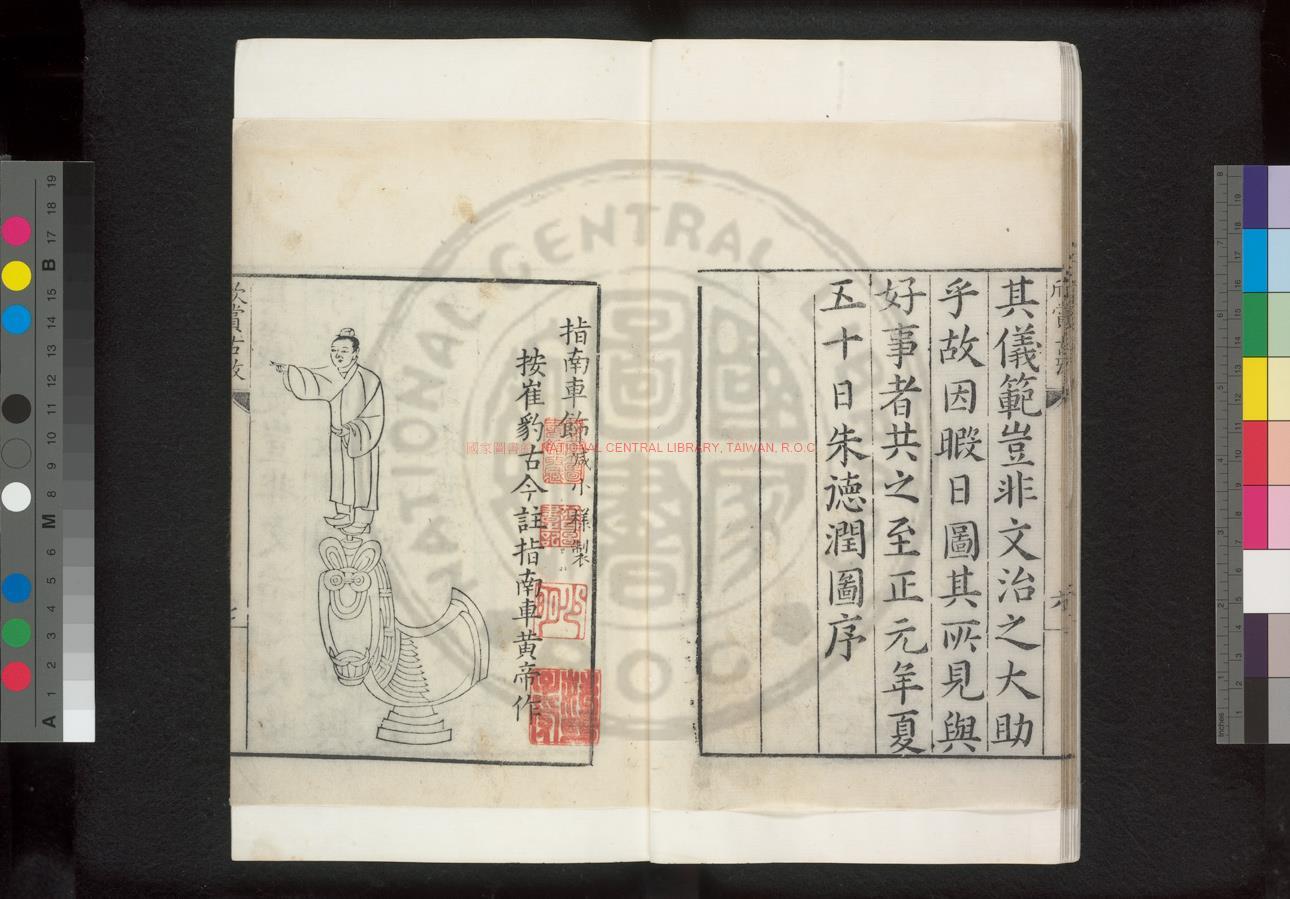 其儀範豈非文治之大助
乎故因暇日圖其所見與
好事者共之至正元年夏
五十日朱德潤圖序
指南車飾減小樣製
按崔豹古今註指南車黃帝作
國家圖書館 NATIONAL CENTRAL LIBRARY, TAIWAN, R.O.C
NATIONAL CENTRAL
R.O.C